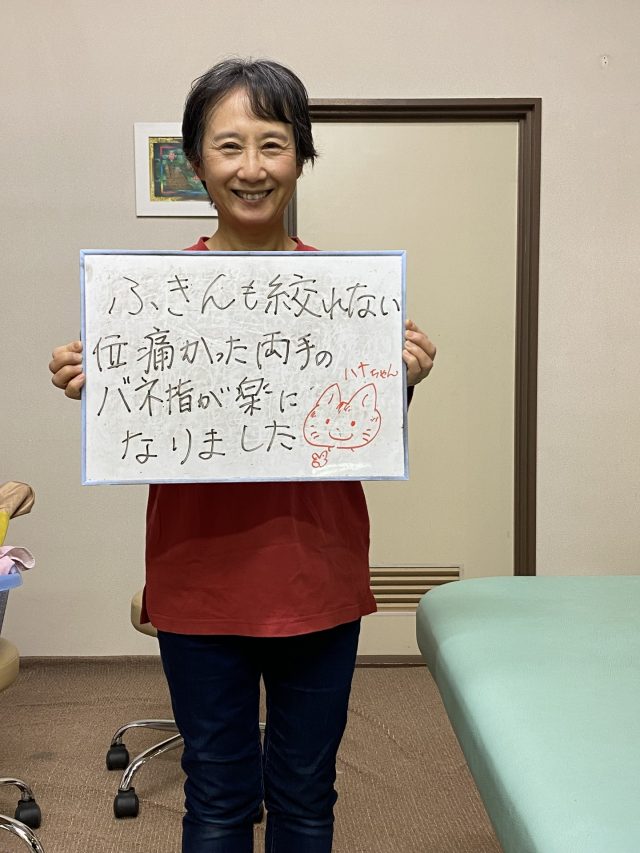 ふきんも絞れない
位痛かった両手の
バネ指が楽に
なりました
ハナちゃん